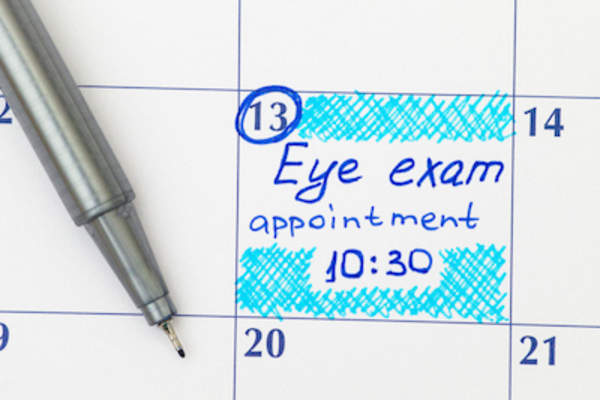 13
14
Eye exam
appointment
10:30
20
21